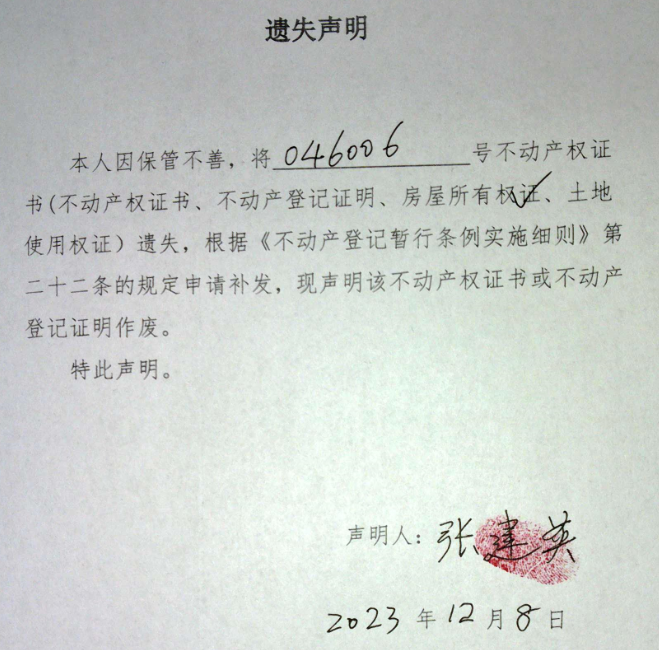 遗失声明
本人因保管不善，将046006号不动产权证
书(不动产权证书、不动产登记证明、房屋所有权证、土地
使用权证）遗失，根据《不动产登记暂行条例实施细则》第
二十二条的规定申请补发，现声明该不动产权证书或不动产
登记证明作废。
特此声明。
声明人：张建英
2023年12月8日